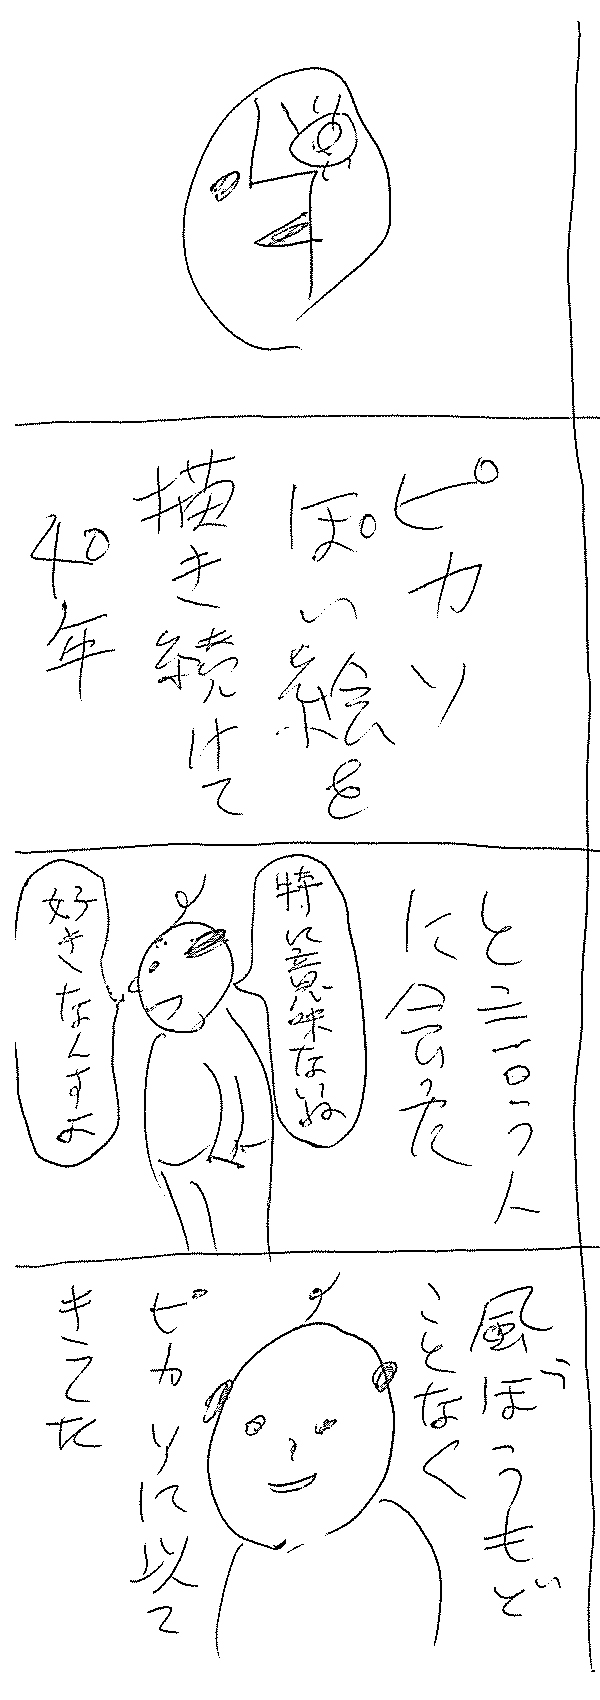 ピカソ
ぽい絵を
描き続けて
40年
と言う人
に会った
特に意味ないね
好きなんすよ
風ぼうもど
ことなく
ピカソに似て
きてた